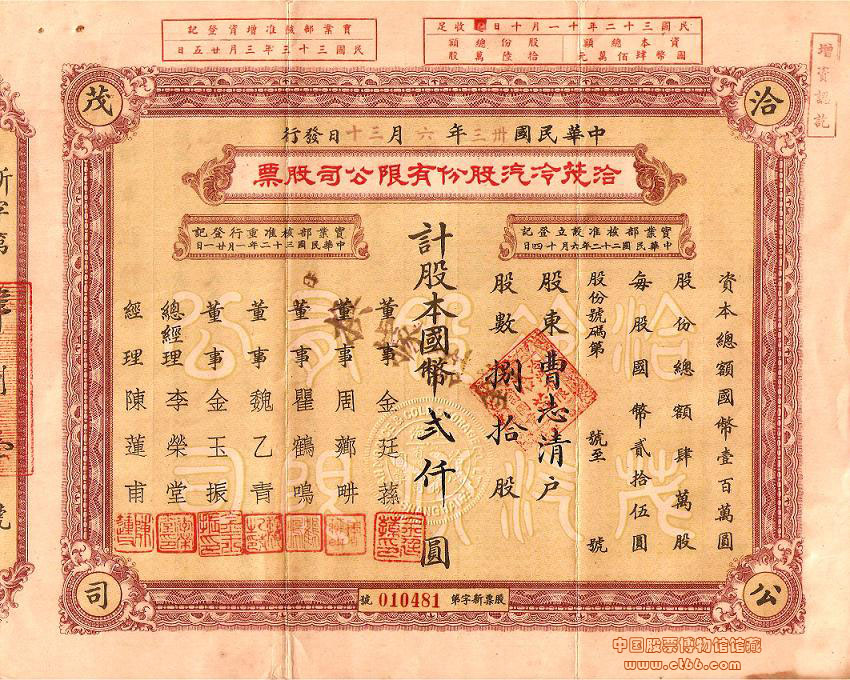 民國三十二年十一月十日收足
資本總額國幣肆佰萬元
股份總額拾陸萬股
實業部核准增資登記
民國三十三年三月廿五日
增資認訖
洽茂公司
中華民國卅三年六月三十日發行
洽茂冷汽股份有限公司股票
實業部核准設立登記
中華民國二十二年六月十四日
實業部核准重行登記
中華民國三十二年一月廿一日
資本總額國幣壹百萬圓
股份總額肆萬股
每股國幣貳拾伍圓
股份號碼第 號至 號
股東曹志清戶
股數捌拾股
計股本國幣貳仟圓
董事金廷蓀
董事周薌畊
董事瞿鶴鳴
董事魏乙青
董事金玉振
總經理李榮堂
經理陳蓮甫
股票新字第010481號
中国股票博物馆馆藏
www.ct66.com